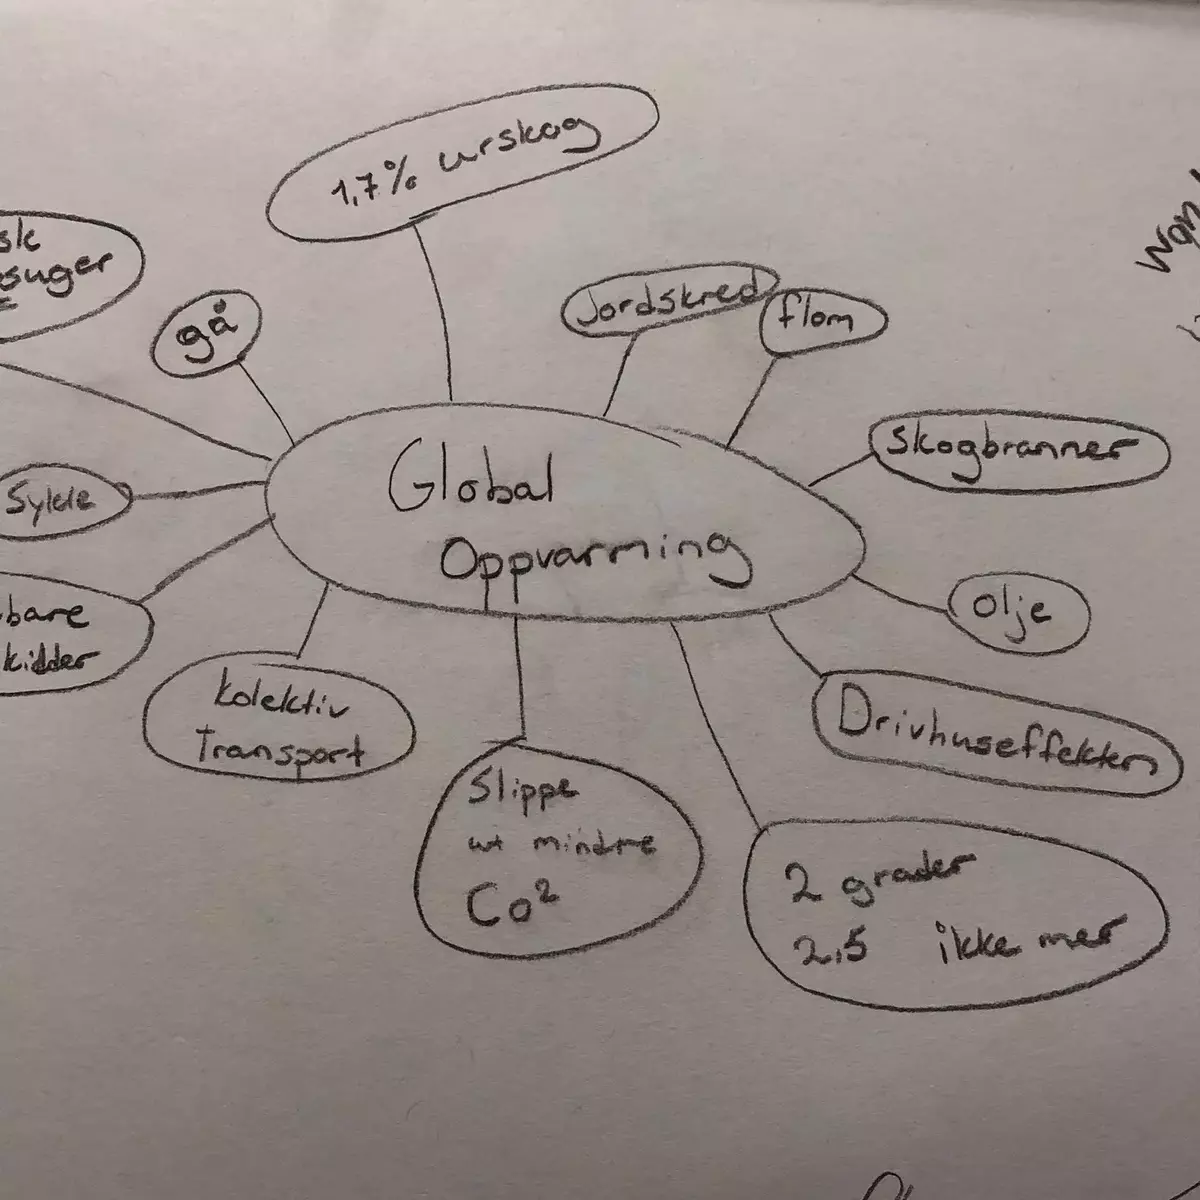 1,7% urskog
sk
suger
gå
Jordskred
flom
Skogbranner
Global
Oppvarming
Sykle
bare
kidder
Olje
kolektiv
Transport
Drivhuseffekten
Slippe
ut mindre
Co²
2 grader
2,5 ikke mer